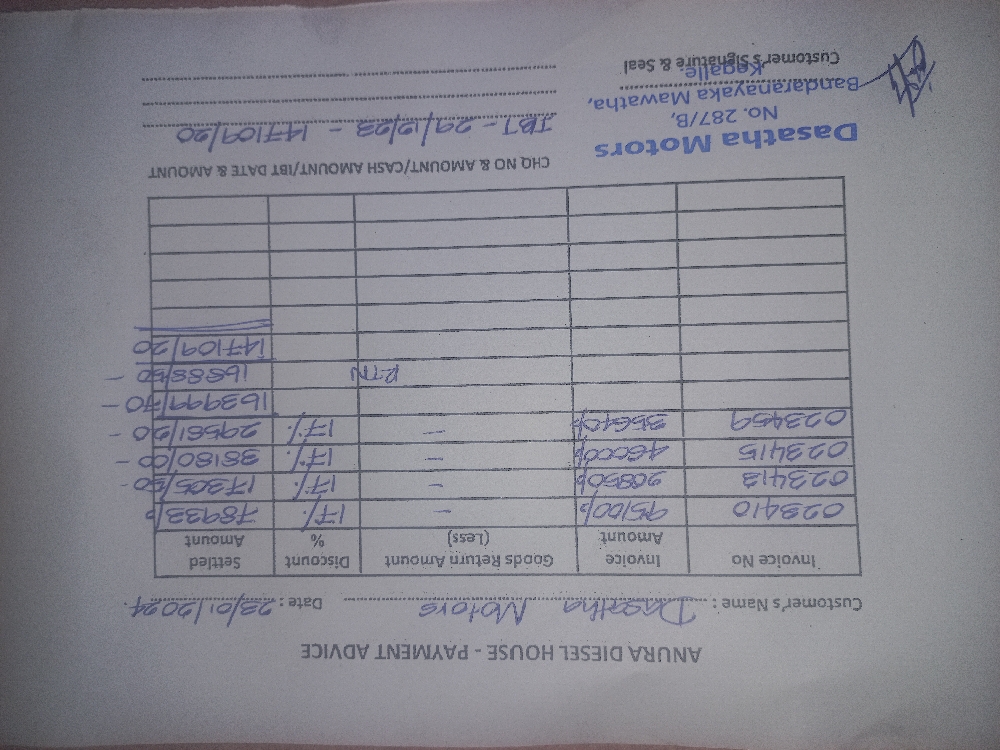 ANURA DIESEL HOUSE - PAYMENT ADVICE
Customer's Name : Dasatha Motors Date : 23/01/2024
Invoice No Invoice Amount Goods Return Amount (Less) Discount % Settled Amount
023410 95100/- – 17% 78933/-
023413 20850/- – 17% 17305/50 -
023415 46000/- – 17% 38180/00 -
023459 35640/- – 17% 29581/20 -
163999/70 -
RTN 16890/50 -
147109/20
CHQ NO & AMOUNT/CASH AMOUNT/IBT DATE & AMOUNT
IBT - 29/12/23 - 147109/20
Dasatha Motors
No. 287/B,
Bandaranayaka Mawatha,
Kegalle.
Customer's Signature & Seal